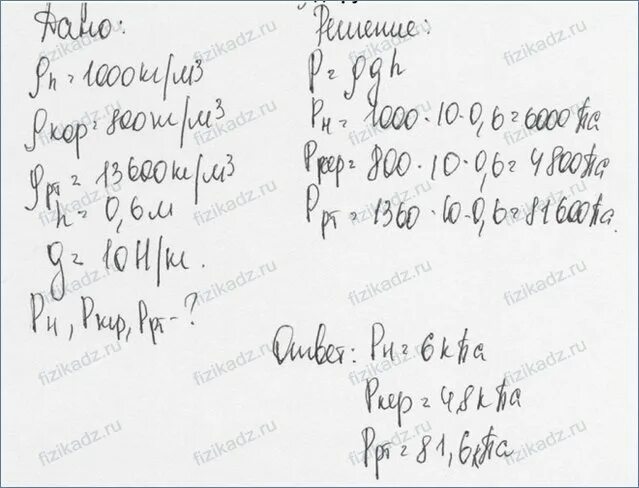 Дано:
ρн = 1000 кг/м³
ρкер = 800 кг/м³
ρрт = 13600 кг/м³
h = 0,6 м
g = 10 Н/кг.
Pн, Pкер, Pрт - ?
Решение:
P = ρgh
Pн = 1000 · 10 · 0,6 = 6000 Па
Pкер = 800 · 10 · 0,6 = 4800 Па
Pрт = 1360 · 10 · 0,6 = 81600 Па.
Ответ: Pн = 6 кПа
Pкер = 4,8 кПа
Pрт = 81,6 кПа
fizikadz.ru